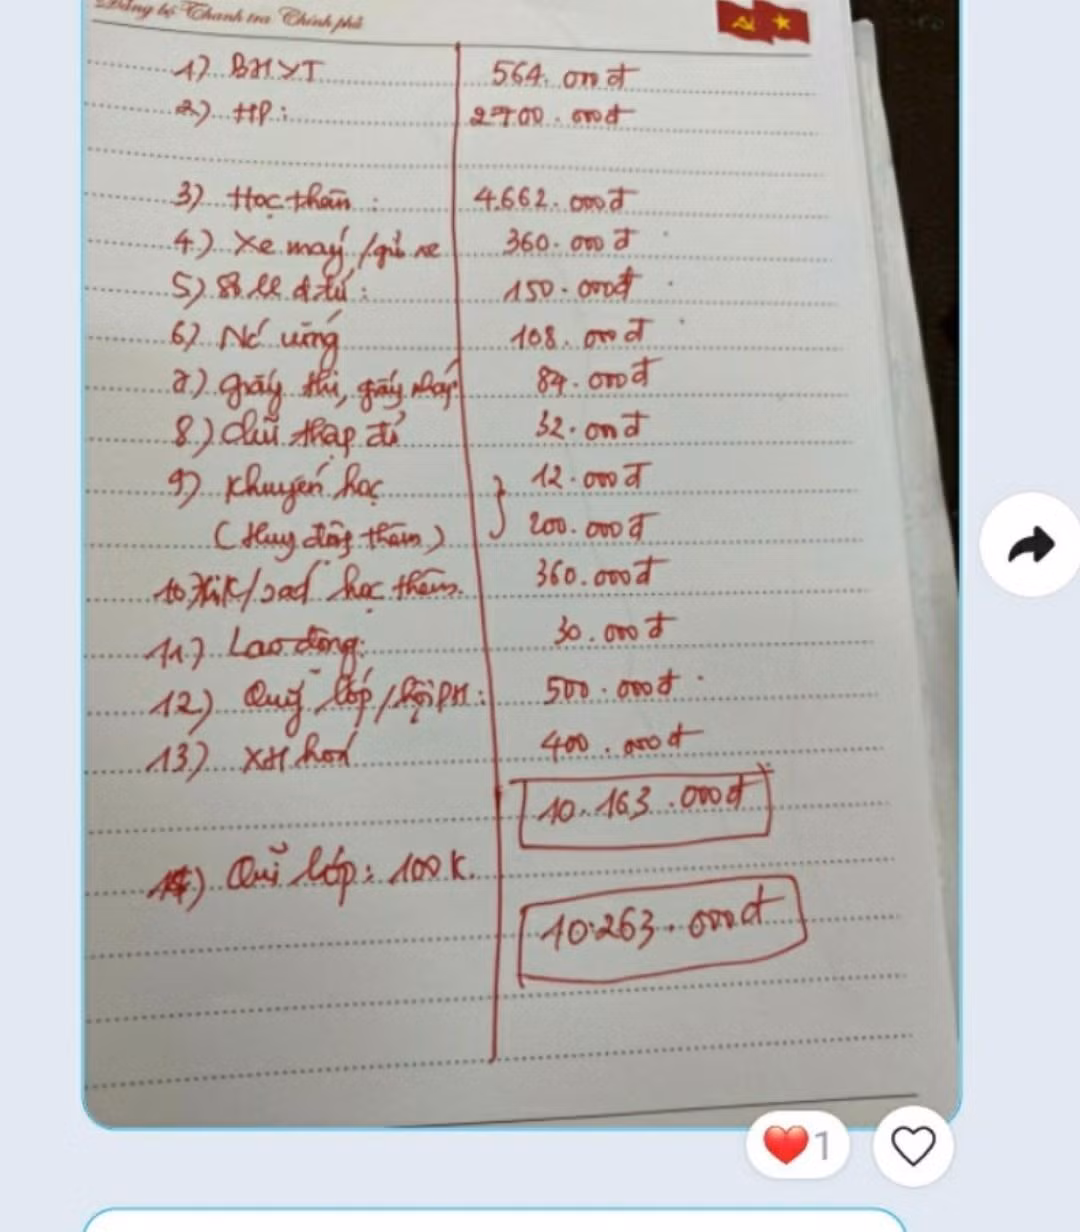 Đảng bộ Thanh tra Chính phủ
1) BHYT 564.000đ
2) HP: 2700.000đ
3) Học thêm: 4.662.000đ
4) Xe máy/gửi xe 360.000đ
5) Sổ LL đ.tử: 150.000đ
6) Nc' uống 108.000đ
7) giấy thi, giấy nháp 84.000đ
8) chữ thập đỏ 32.000đ
9) Khuyến học } 12.000đ
(Huy động thêm) 200.000đ
học thêm. 360.000đ
11) Lao động: 30.000đ
12) Quỹ lớp/hội PH: 500.000đ
13) XH hoá 400.000đ
10.163.000đ
14) Quĩ lớp: 100K.
10.263.000đ
1